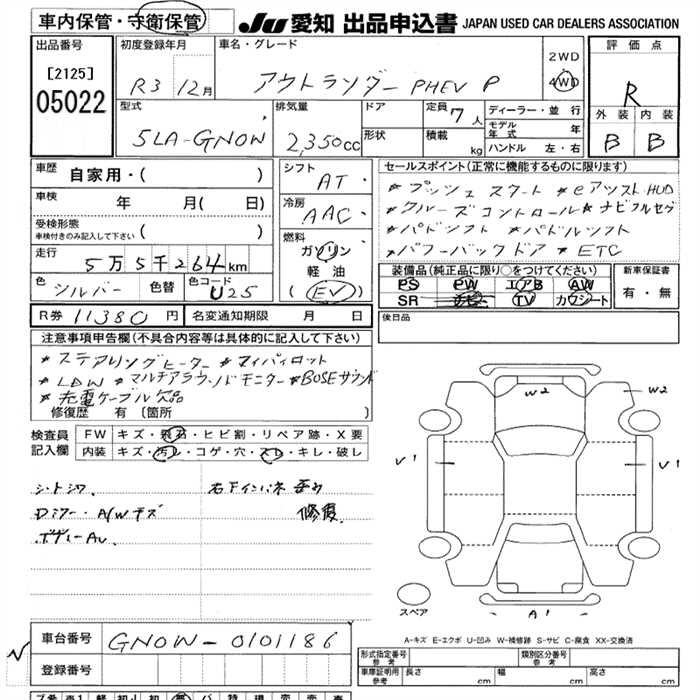 車内保管・守衛保管 JU 愛知 出品申込書 JAPAN USED CAR DEALERS ASSOCIATION
出品番号 初度登録年月 車名・グレード 2WD 評価点
[2125] R3 12月 アウトランダー PHEV P 4WD R
05022
型式 排気量 ドア 定員 7人 ディーラー・並行 外装 内装
モデル年式 年
5LA-GN0W 2,350cc 形状 積載 kg ハンドル 左・右 B B
車歴 自家用・( ) シフト AT セールスポイント(正常に機能するものに限ります)
車検 年 月( 日) 冷房 AAC *プッシュスタート *eアシスト HUD
受検形態 *クルーズコントロール *ナビフルセグ
車検付きのみ記入して下さい ( ) 燃料 *パドルシフト
走行 5万5千264km ガソリン *パワーバックドア *ETC
軽油 装備品(純正品に限り○をつけてください) 新車保証書
色 シルバー 色替 色コード U25 (EV) PS PW エアB AW 有・無
SR ナビ TV カワシート
R券 11380円 名変通知期限 月 日 後日品
注意事項申告欄(不具合内容等は具体的に記入して下さい)
*ステアリングヒーター *マイパイロット
*LDW *マルチアラウンドモニター *BOSEサウンド
*充電ケーブル欠品
修復歴 有 [箇所 ] W2 W2
検査員 FW キズ・飛石・ヒビ割・リペア跡・X要
記入欄 内装 キズ・汚レ・コゲ・穴・スレ・キレ・破レ
V1 V1
シートシワ 右下インパネ
Dミラー・A/Wキズ 修復
スペア A1
車台番号 GN0W-0101186 A-キズ E-エクボ U-凹み W-補修跡 S-サビ C-腐食 XX-交換済
登録番号 形式指定番号 参考 類別区分番号 参考
車庫証明用 参考 長さ cm 幅 cm 高さ cm